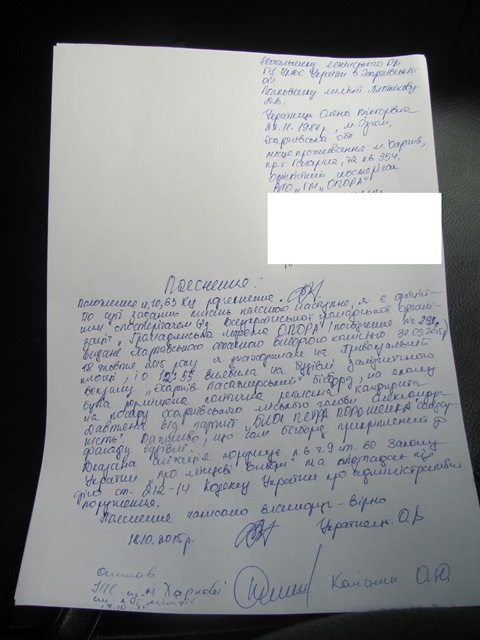 Начальнику Ленінського РВ
ГУ УМВС України в Харківській
обл
Полковнику міліції
Д.В.
Украінець Олена Вікторівна
22.11.1987р, м. Ізюм,
Харківська обл.
місце проживання: м. Харків,
пр-т Гагаріна, 72 кв 354.
Офіційний спостерігач
ВГО "ГМ "ОПОРА"
Пояснення:
Положення ст. 10, 63 КУ роз'яснене.
По суті заданих питань поясною наступне, я є офіцій-
ним спостерігачем від Всеукраїнської громадської органі-
зації "Громадянська мережа ОПОРА" (посвідчення № 291,
видане Харківською міською виборчою комісією 30.09.2015р)
18 жовтня 2015 року я знаходилась на Привокзальній
площі, і о 12:55 виявила на будівлі залізничного
вокзалу "Харків Пасажирський" білборд, на якому
була розміщена політична реклама кандидата
на посаду Харківського міського голови Олександра
Давтяна від партії "БЛОК ПЕТРА ПОРОШЕНКА солідар-
ність". Важливо, що сам білборд прикріплений до
фасаду будівлі.
Вказана ситуація порушує п. 6 ч. 9 ст. 60 Закону
України "про місцеві вибори" та підпадає під
дію ст. 212-14 Кодексу України про адміністративні
порушення.
Пояснення написано власноруч - вірно
18.10.2015р. Украінець О.В
Опитав
м. Харкові
Колісник О.Ю.